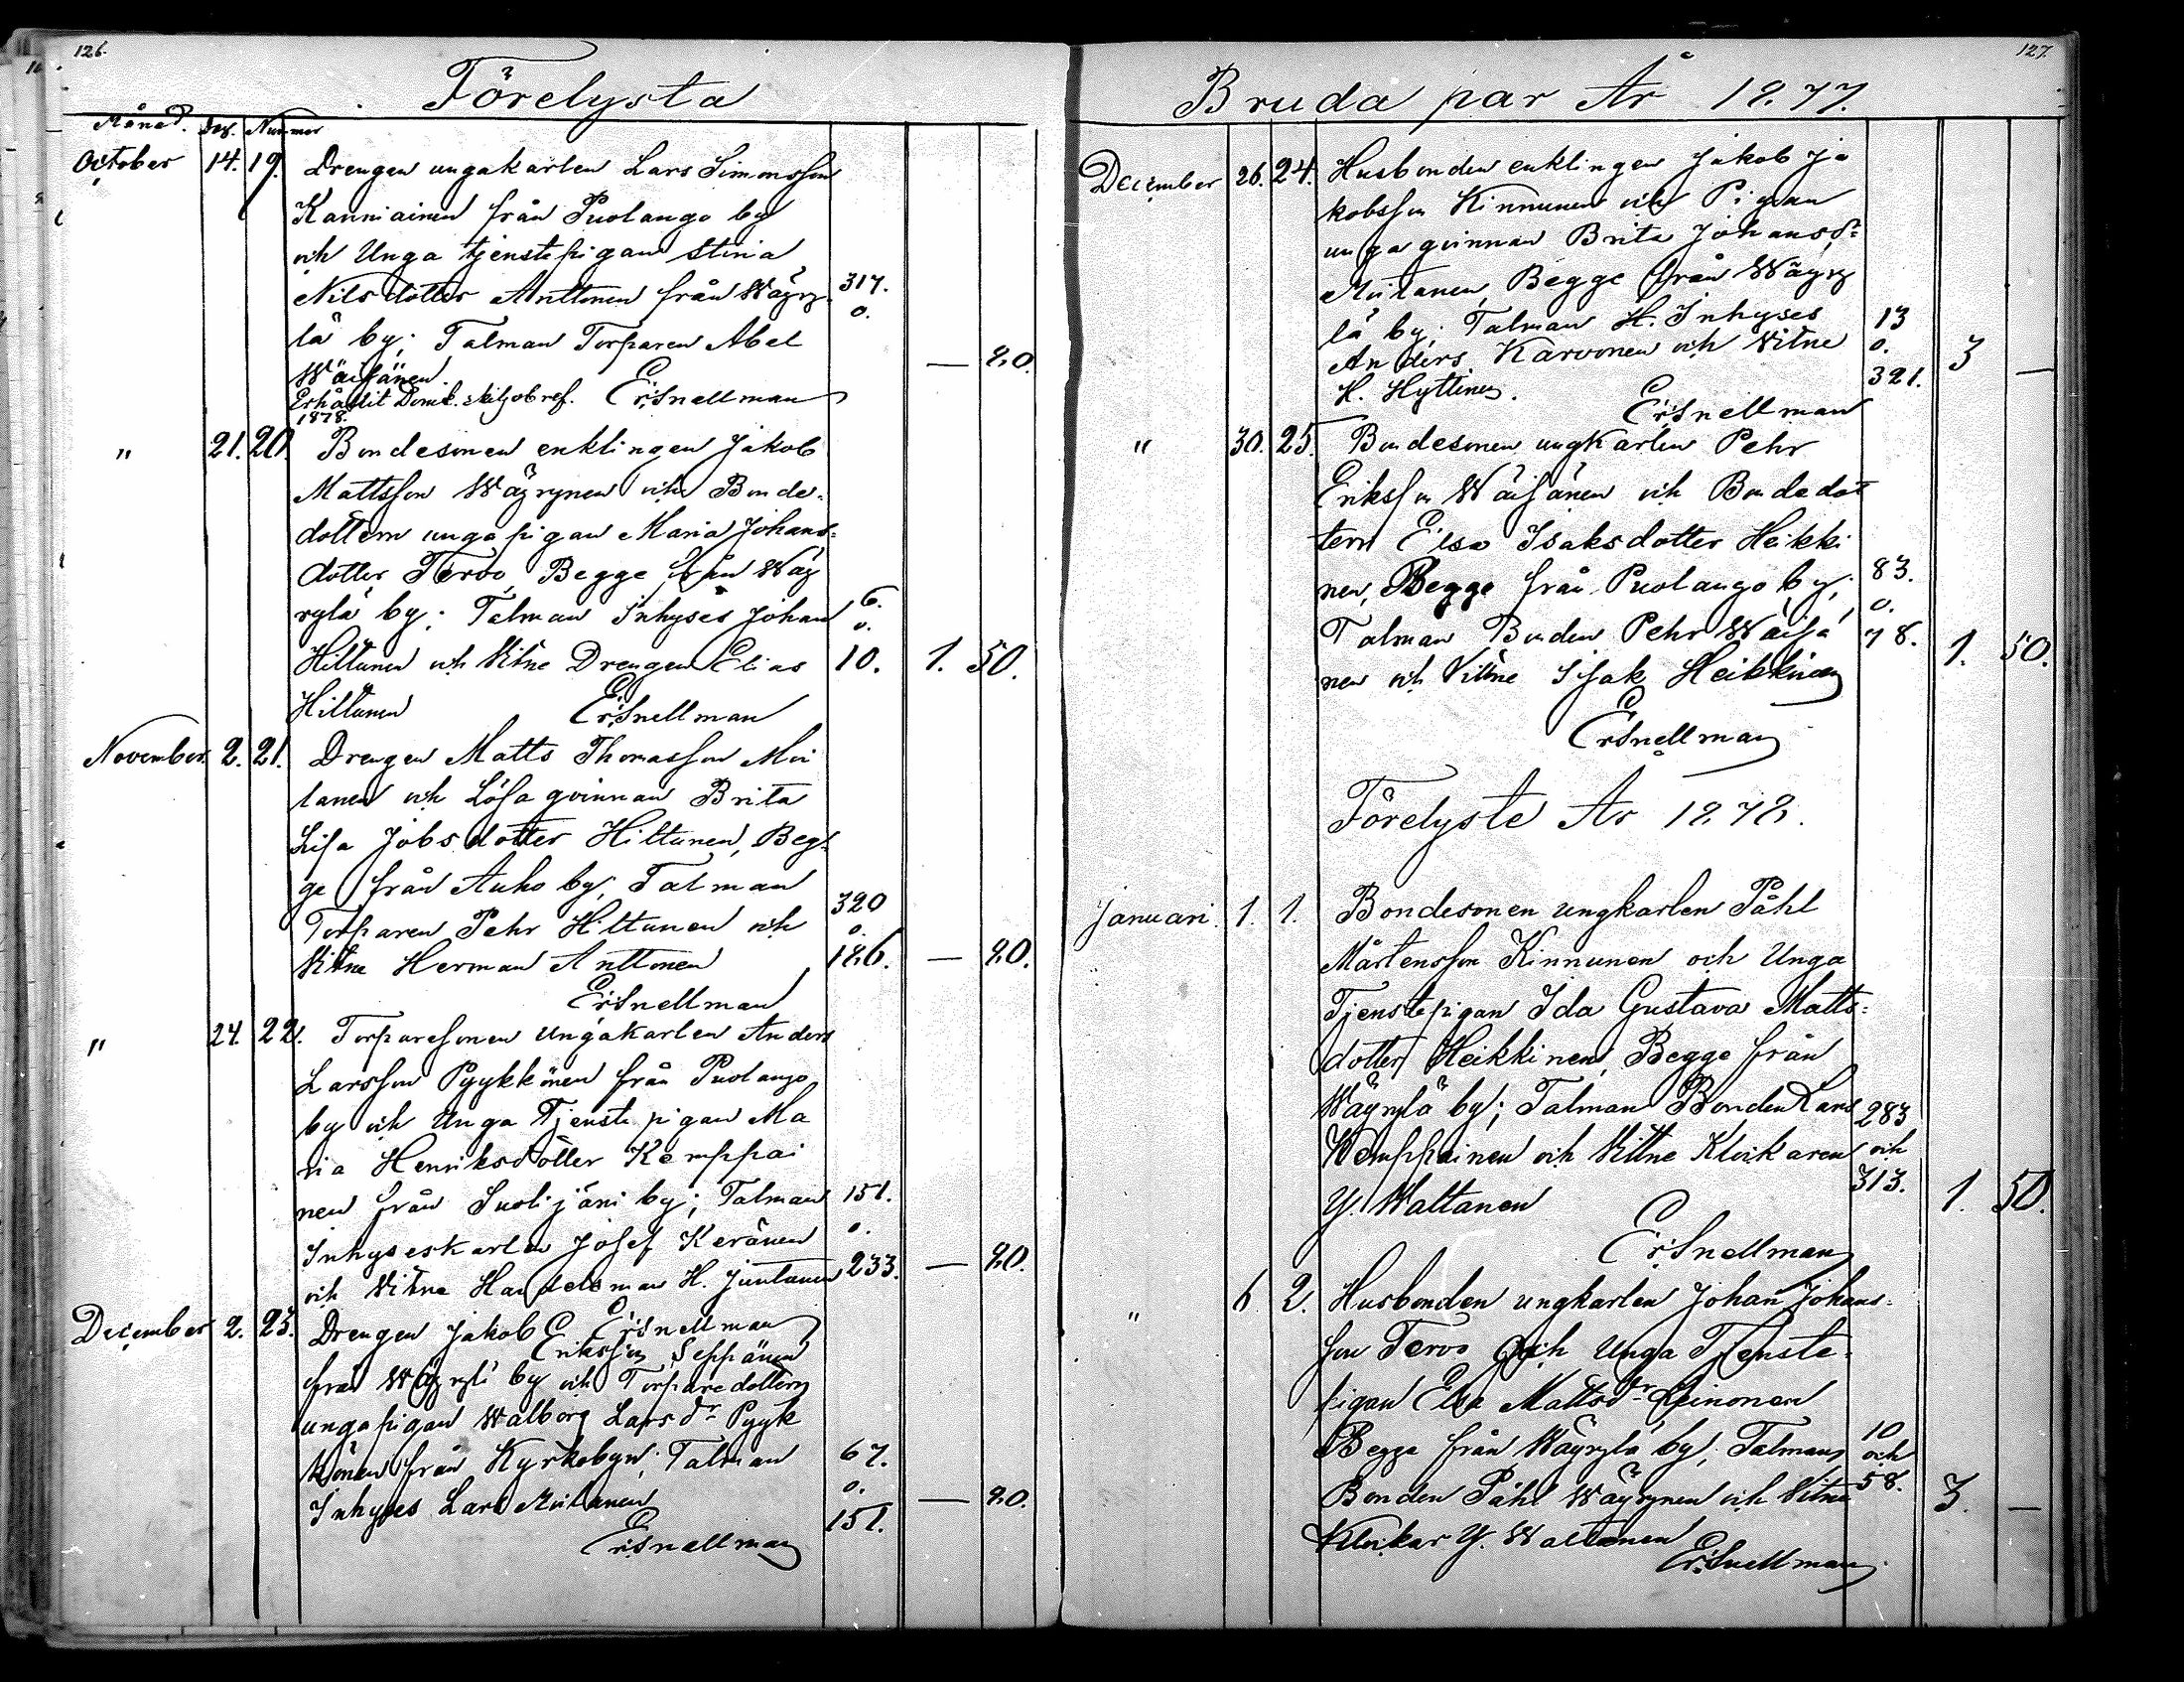 126.
Förelysta
Månad. Dag. Nummer
October 14. 19. Drengen ungakarlen Lars Simonsson
Kanniainen från Puolango by
och Unga tjenstepigan Stina
Nilsdotter Anttonen från Wäyry- 317.
lä by; Talman Torparen Abel o.
Wäisänen. — 80.
Erhållit Domk. skiljobref. ErSnellman
1878.
" 21. 20. Bondesonen enklingen Jakob
Mattsson Wäyrynen och Bonde-
dottern unga pigan Maria Johans-
dotter Tervo, Begge från Wäy
rylä by; Talman Inhyses Johan 6. o.
Hiltunen och Vitne Drengen Elias 10. 1. 50.
Hiltunen ErSnellman
November 2. 21. Drengen Matts Thomasson Moi
lanen och Lösa qvinnan Brita
Lisa Jobsdotter Hiltunen, Beg-
ge från Auho by; Talman
Torparen Pehr Hiltunen och 320 o.
Vitne Herman Anttonen 186. — 80.
ErSnellman
" 24. 22. Torparesonen Ungakarlen Anders
Larsson Pyykkönen från Puolango
by och Unga Tjenste pigan Ma
ria Henriksdotter Kemppai
nen från Suolijärvi by; Talman 151.
Inhyseskarlen Josef Keränen o.
och Vitne Handelsman H. Juntunen 233. — 80.
ErSnellman
December 2. 23. Drengen Jakob Eriksson Seppänen
från Wäyrylä by och Torparedottern
ungapigan Walborg Larsdr Pyyk
könen från Kyrkobyn; Talman 67.
Inhyses Lars Miilanen o. — 80.
ErSnellman 151.
127.
Bruda par År 1877.
December 26. 24. Husbonden enklingen Jakob Ja
kobsson Kinnunen och Pigan
unga qvinnan Brita Johansdr
Miilanen, Begge från Wäyry
lä by; Talman H. Inhyses 13
Anders Karvonen och Vitne o. 3 —
H. Hyttinen. 321.
ErSnellman
" 30. 25. Bondesonen ungkarlen Pehr
Eriksson Wäisänen och Bondedot
tern Elsa Isaksdotter Heikki
nen, Begge från Puolango by; 83.
Talman Bonden Pehr Wäisä o. 78.
nen och Vittne Isak Heikkinen 1. 50.
ErSnellman
Förelyste År 1878.
Januari. 1. 1. Bondesonen ungkarlen Påhl
Mårtensson Kinnunen och Unga
Tjenstepigan Ida Gustava Matts-
dotter Heikkinen, Begge från
Wäyrylä by; Talman Bonden Lars 283
Kemppainen och Vittne Klockaren och
Y. Waltanen 313. 1. 50.
ErSnellman
" 6. 2. Husbonden ungkarlen Johan Johans-
son Tervo och Unga Tjenste-
pigan Elsa Mattsdr Leinonen
Begge från Wäyrylä by; Talman 10 och
Bonden Påhl Wäyrynen och Vitne 58. 3. —
Klockar Y. Waltanen
ErSnellman